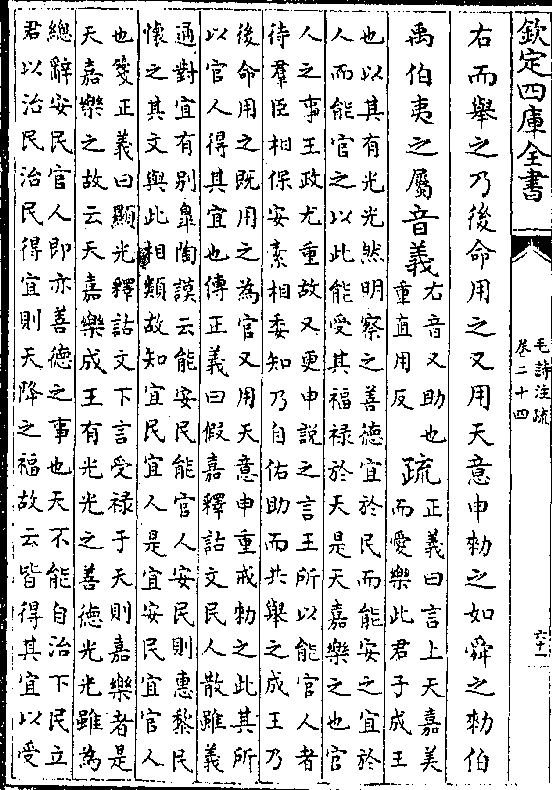 欽定四庫全書
毛詩注疏
卷二十四
六十
右而舉之乃後命用之又用天意申勑之如舜之勑伯
禹伯夷之屬音義
右音又助也
重直用反
疏
正義曰言上天嘉美
而愛樂此君子成王
也以其有光光然明察之善德宜於民而能安之宜於
人而能官之以此能受其福祿於天是天嘉樂之也官
人之事王政尤重故又更申說之言王所以能官人者
待羣臣相保安素相委知乃自佑助而共舉之成王乃
後命用之既用之為官又用天意申重戒勑之此其所
以官人得其宜也傳正義曰假嘉釋詁文民人散雖義
通對宜有別臯陶謨云能安民能官人安民則惠黎民
懷之其文與此相類故知宜民宜人是宜安民宜官人
也箋正義曰顯光釋詁文下言受禄于天則嘉樂者是
天嘉樂之故云天嘉樂成王有光光之善德光光雖為
總辭安民官人即亦善德之事也天不能自治下民立
君以治民治民得宜則天降之福故云皆得其宜以受